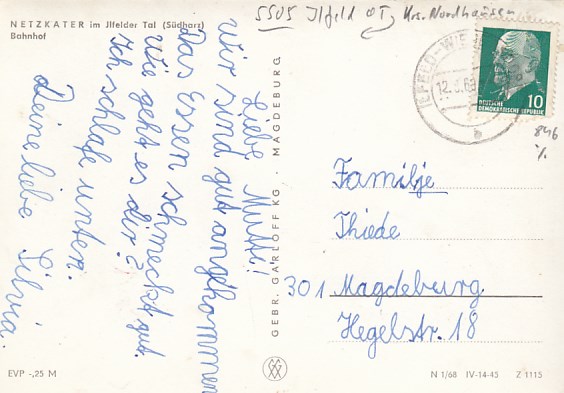 5505 Ilfeld OT, Krs. Nordhausen
NETZKATER im Ilfelder Tal (Südharz)
Bahnhof
Liebe Mutti!
Wir sind gut angekommen
Das Essen schmeckt gut.
Wie geht es dir?
Ich schlafe unten.
Deine liebe Silvia.
GEBR. GARLOFF KG · MAGDEBURG
DEUTSCHE
DEMOKRATISCHE REPUBLIK
10
846
Familje
Thiede
301 Magdeburg
Hegelstr. 18
EVP -,25 M
N 1/68 IV-14-45 Z 1115